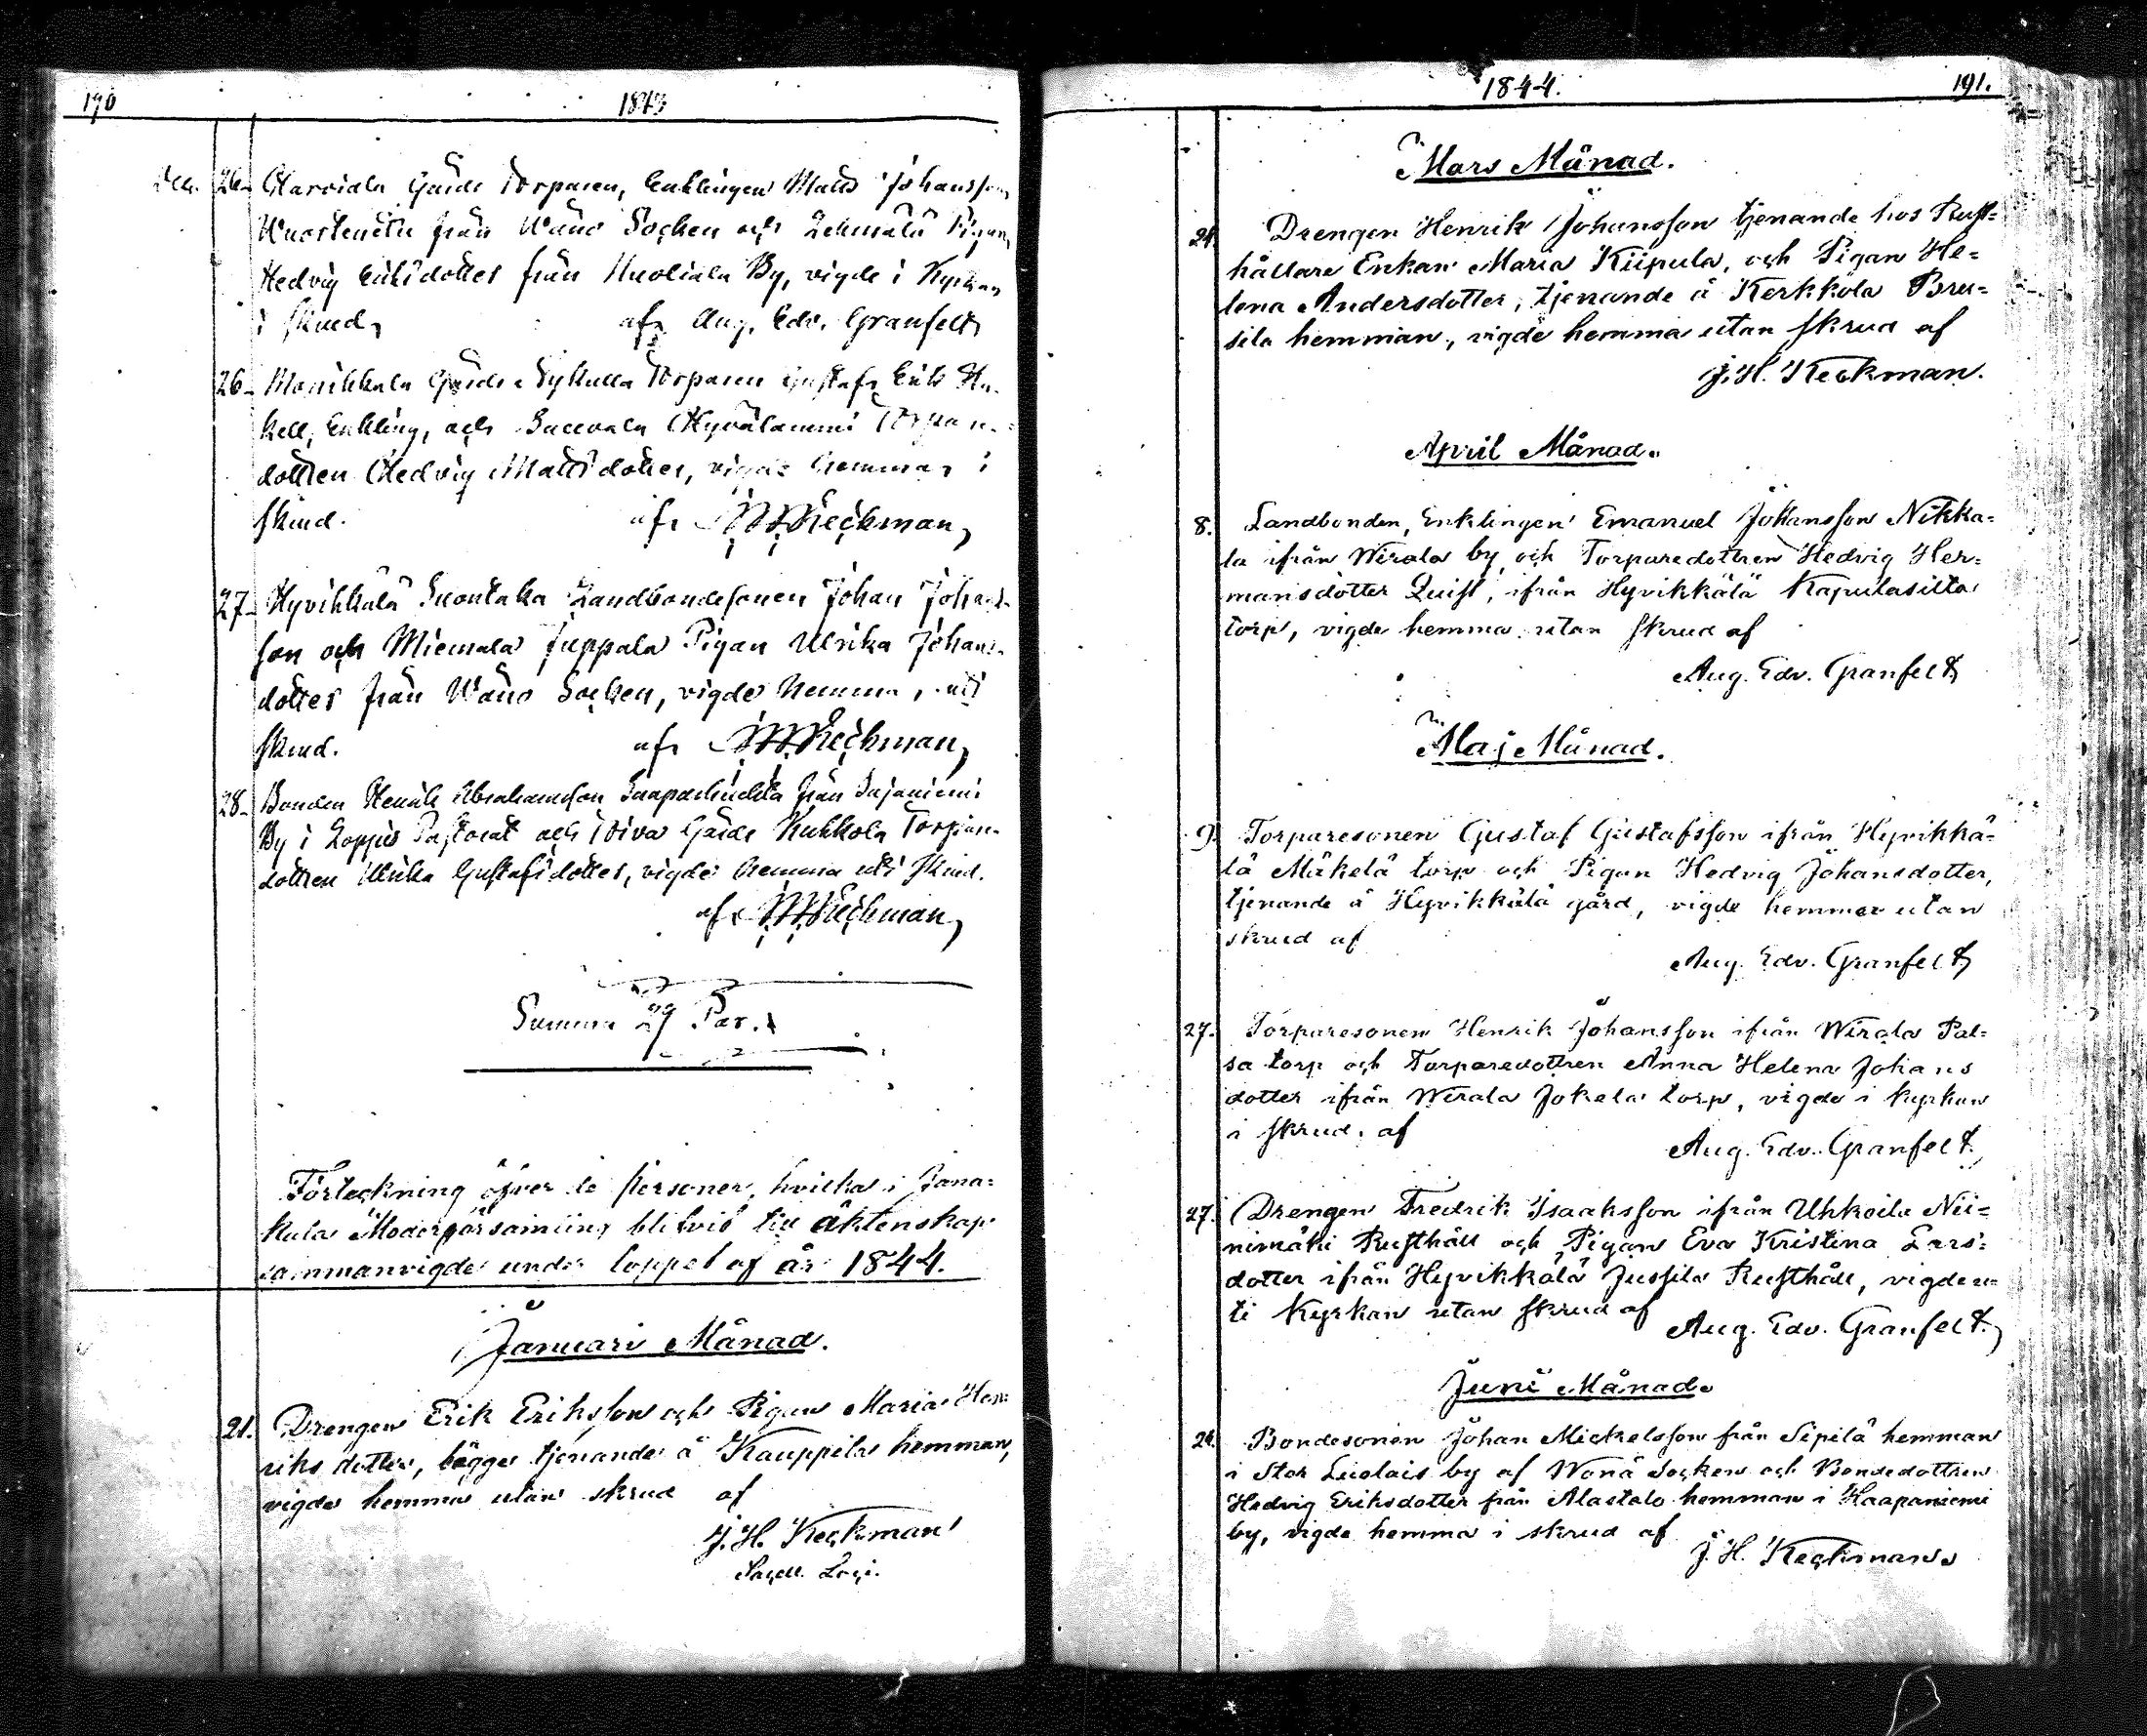 190
1843
Dec. 26. Harviala Gårds Torparen, Enklingen Matts Johansson
från Wånå Socken och Pigan
Hedvig Eriksdotter från Huoliala By, vigde i Kyrkan
i skrud, af Aug. Edv. Granfelt
26. Monikkala Gårds Torparen Gustaf Erik
Enkling, och Torpare
dottren Hedvig Mattsdotter, vigde hemma, i
skrud. af Keckman,
27. Hyvikkälä Suontaka Landbondesonen Johan Johans
son och Miemala Juppala Pigan Ulrika Johans
dotter från Wånå Socken, vigde hemma, uti
skrud. af Keckman,
28. Bonden Henrik Abrahamsson från Sajaniemi
By i Loppis Pastorat och Toiva Gårds Kukkola Torpare
dottren Ulrika Gustafsdotter, vigde hemma uti skrud.
af Keckman,
Summa 29 Par.
Förteckning öfver de personer, hvilka i Jana=
kala Moderförsamling blifvit till äktenskap
sammanvigde under loppet af år 1844.
Januari Månad.
21. Drengen Erik Eriksson och Pigan Maria Hen=
riks dotter, bägge tjenande å Kauppila hemman,
vigde hemma utan skrud af
J. H. Keckman
Sacell.
1844.
191.
Mars Månad.
24. Drengen Henrik Johansson tjenande hos Rust=
hållare Enkan Maria Kiipula, och Pigan He=
lena Andersdotter, tjenande å Kerkkola Bru=
sila hemman, vigde hemma utan skrud af
J. H. Keckman.
April Månad.
8. Landbonden, Enklingen Emanuel Johansson Nikka=
la ifrån Wirala by, och Torparedottren Hedvig Her=
mansdotter Quist, ifrån Hyvikkälä Kapulasilta
torp, vigde hemma utan skrud af
Aug. Edv. Granfelt
Maj Månad.
9. Torparesonen Gustaf Gustafsson ifrån Hyvikkä=
lä Mäkelä torp och Pigan Hedvig Johansdotter,
tjenande å Hyvikkälä gård, vigde hemma utan
skrud af
Aug. Edv. Granfelt
27. Torparesonen Henrik Johansson ifrån Wirala Pal=
sa torp och Torparedottren Anna Helena Johans
dotter ifrån Wirala Jokela torp, vigde i kyrkan
i skrud, af
Aug. Edv. Granfelt.
27. Drengen Fredrik Isaaksson ifrån Uhkoila Nii=
nimäki Rusthåll och Pigan Eva Kristina Lars=
dotter ifrån Hyvikkälä Jussila Rusthåll, vigde u=
ti Kyrkan utan skrud af
Aug. Edv. Granfelt.
Juni Månad.
24. Bondesonen Johan Mickelsson från Sipilä hemman
i Stor Luolais by af Wånå Socken och Bondedottren
Hedvig Eriksdotter från Alastalo hemman i Haapaniemi
by, vigde hemma i skrud af
J. H. Keckman